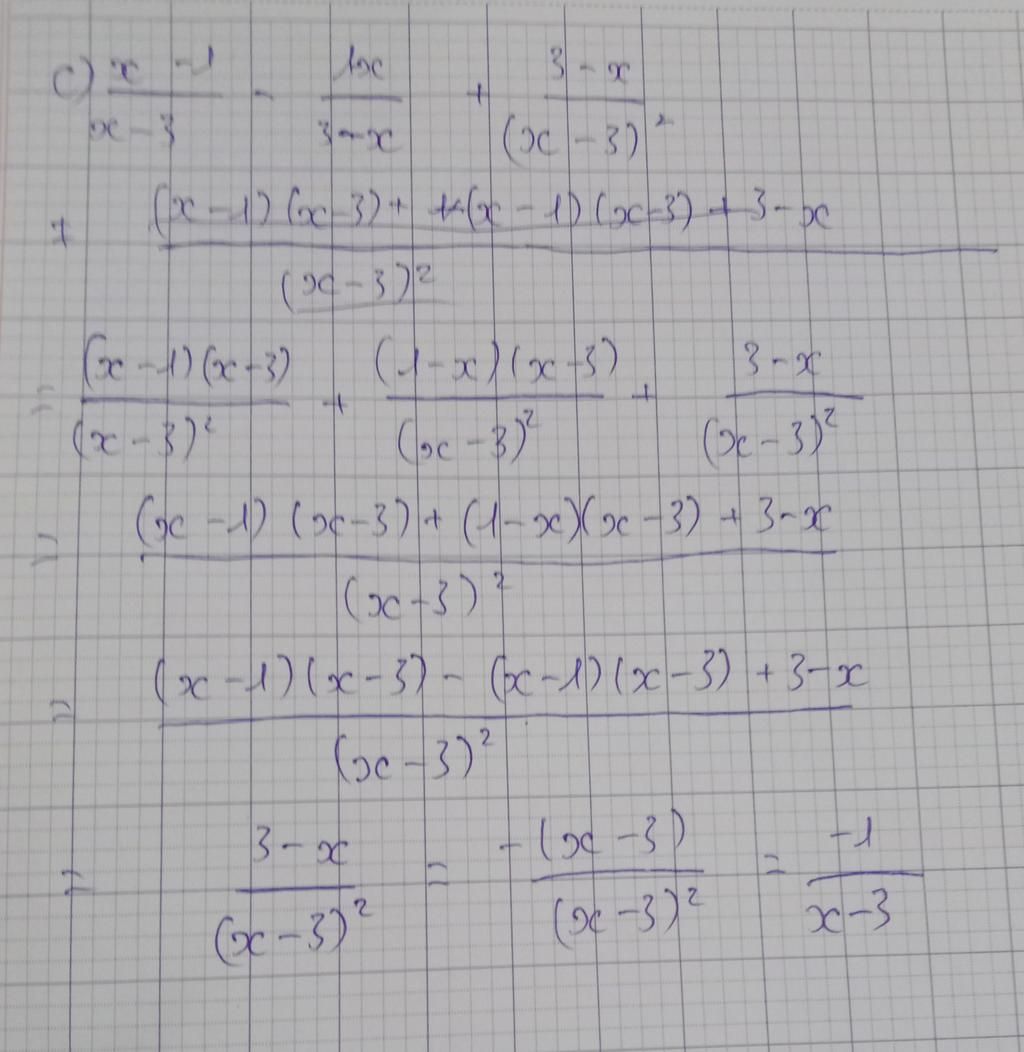 c) (x - 1)/(x - 3) - 1x/(3 - x) + (3 - x)/(x - 3)²
+ ((x - 1)(x - 3) + (x - 1)(x - 3) + 3 - x)/(x - 3)²
= (x - 1)(x - 3)/(x - 3)² + (1 - x)(x - 3)/(x - 3)² + (3 - x)/(x - 3)²
= ((x - 1)(x - 3) + (1 - x)(x - 3) + 3 - x)/(x - 3)²
= ((x - 1)(x - 3) - (x - 1)(x - 3) + 3 - x)/(x - 3)²
= (3 - x)/(x - 3)² = -(x - 3)/(x - 3)² = -1/(x - 3)